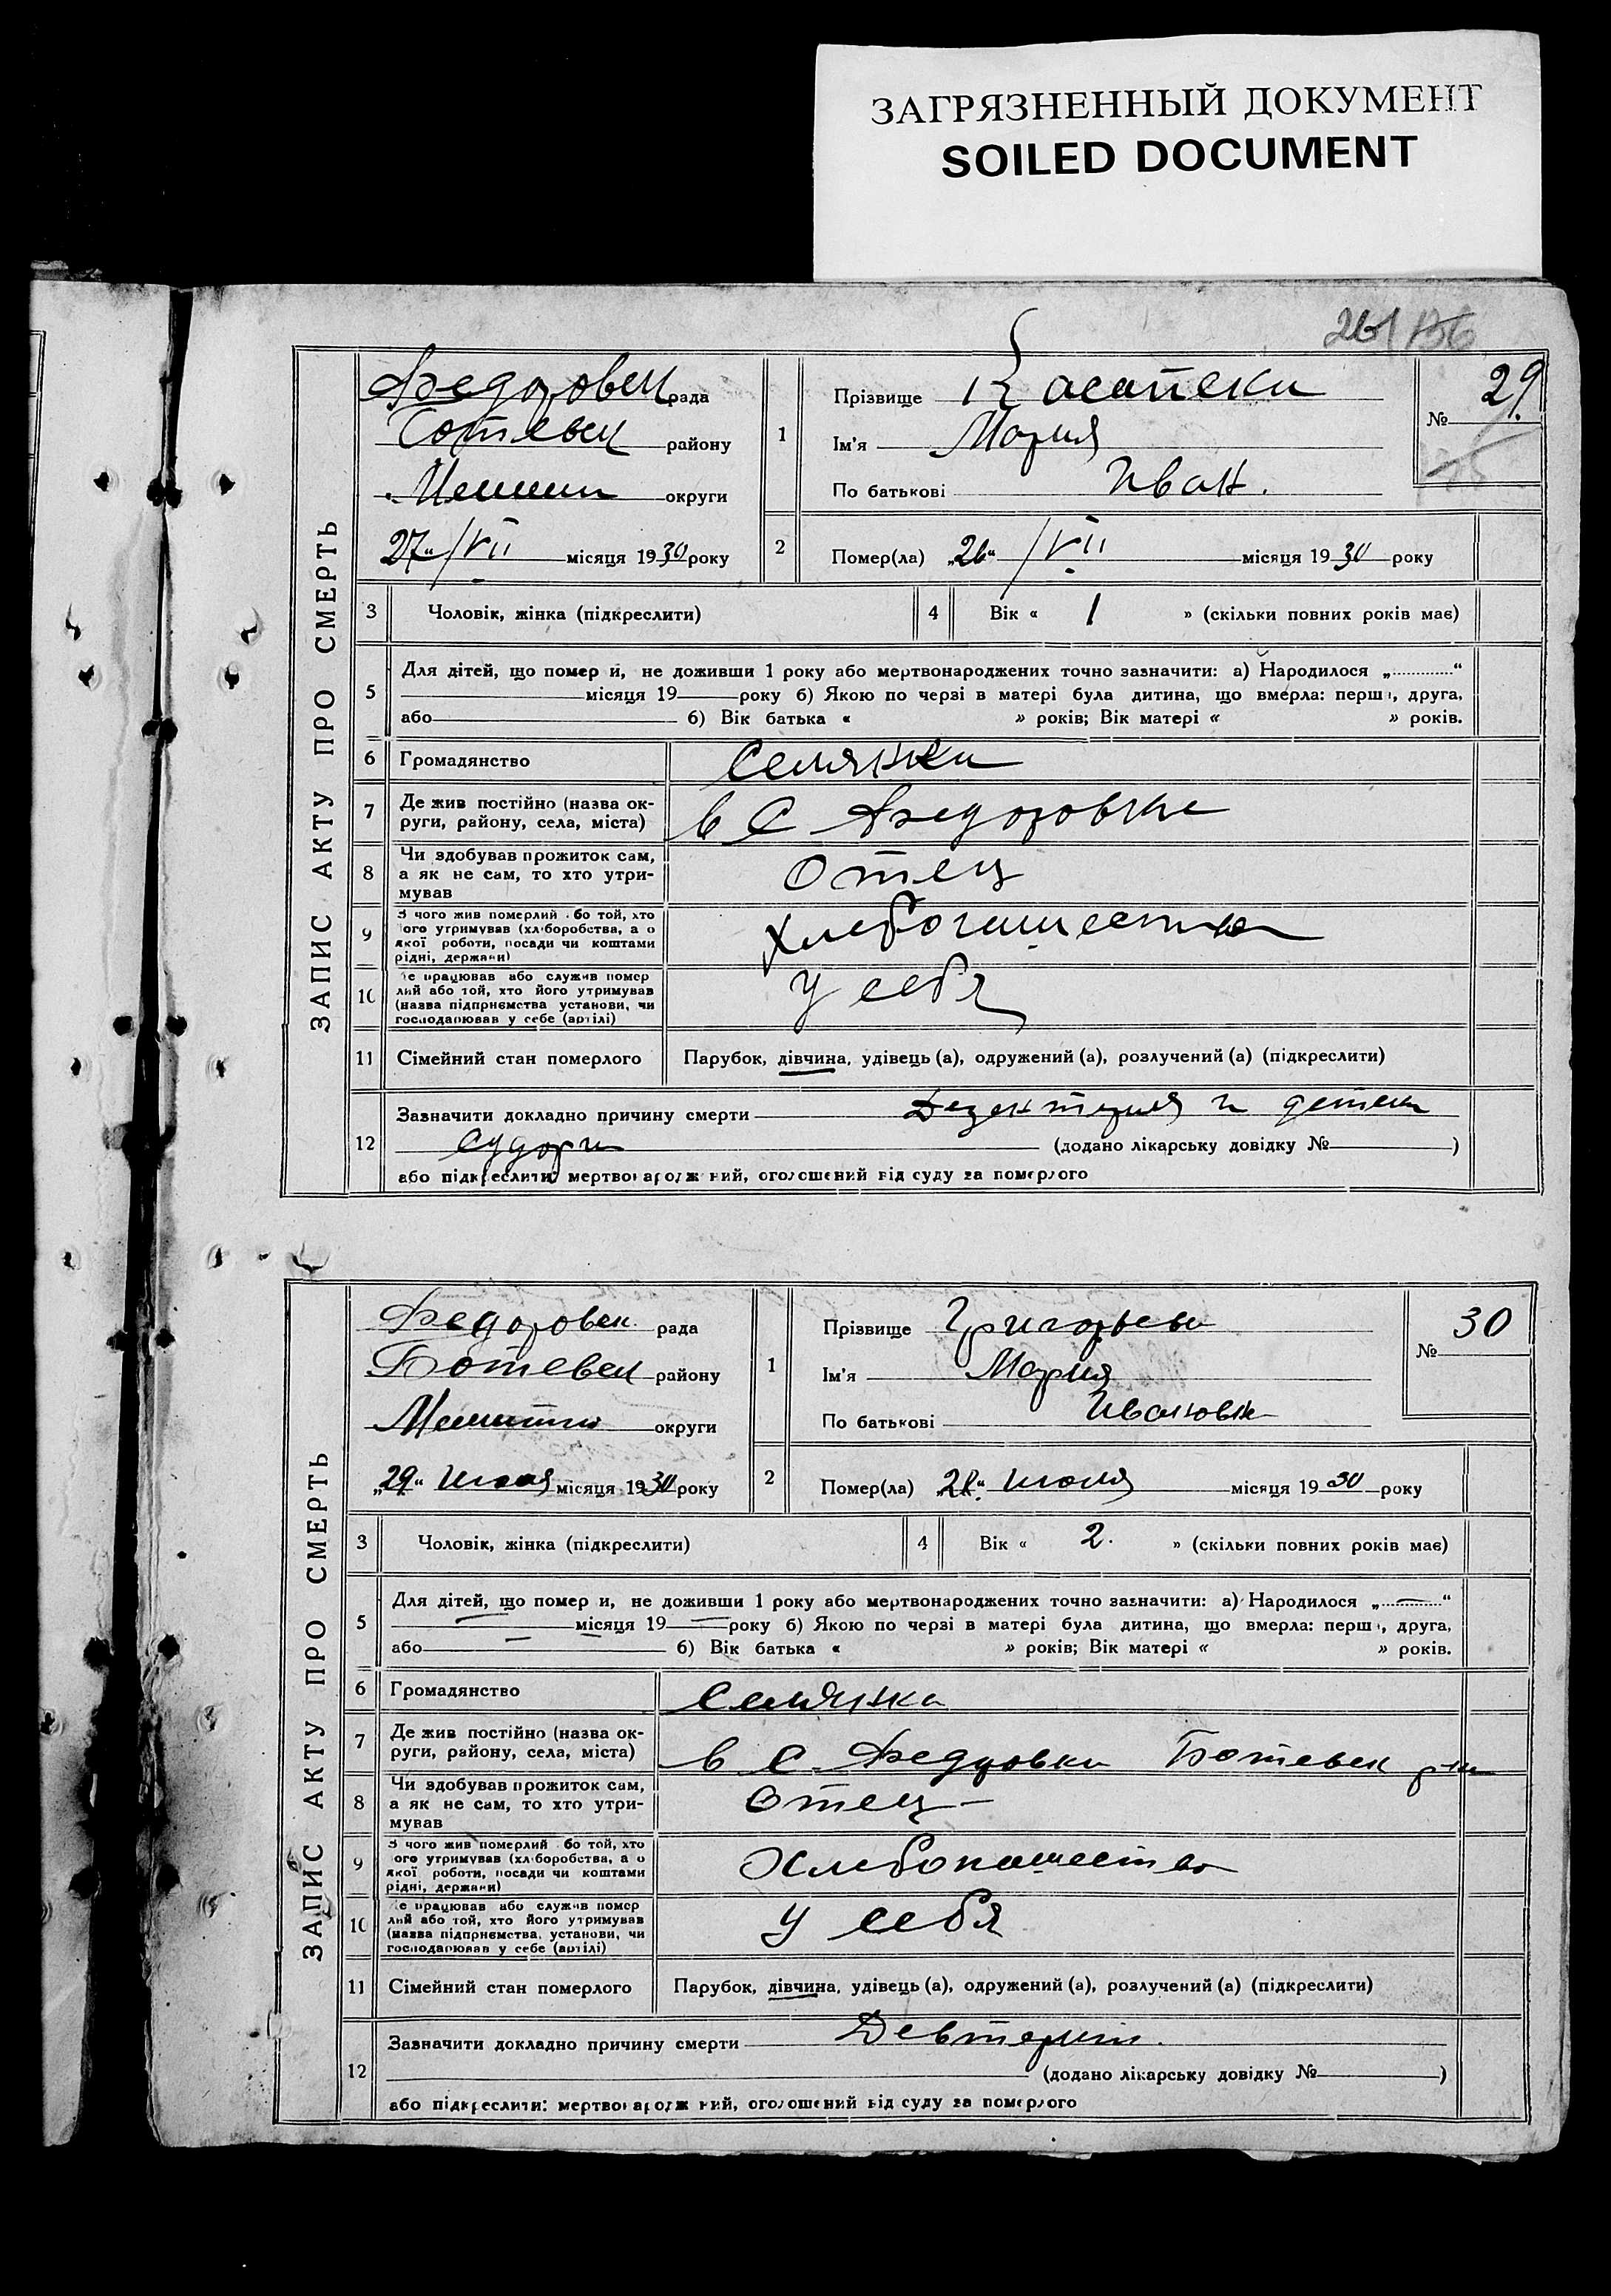 ЗАГРЯЗНЕННЫЙ ДОКУМЕНТ
SOILED DOCUMENT
ЗАПИС АКТУ ПРО СМЕРТЬ
Федоровск рада
району
округи
27“ /VII місяця 1930 року
1
Прізвище
Ім'я Мария
По батькові Иван.
№ 29.
2
Помер(ла) „26“ /VII місяця 1930 року
3 Чоловік, жінка (підкреслити)
4 Вік « 1 » (скільки повних років має)
5 Для дітей, що помер и, не доживши 1 року або мертвонароджених точно зазначити: а) Народилося „............“
місяця 19 року б) Якою по черзі в матері була дитина, що вмерла: перш , друга,
або б) Вік батька « » років; Вік матері « » років.
6 Громадянство Селянка
7 Де жив постійно (назва ок-
руги, району, села, міста)
в С Федоровке
8 Чи здобував прожиток сам,
а як не сам, то хто утри-
мував
Отец
9 З чого жив померлий бо той, хто
ого утримував (хл боробства, а о
якої роботи, посади чи коштами
рідні, держави)
Хлебопашество
10 е працював або служив помер
лий або той, хто його утримував
(назва підприємства установи, чи
господарював у себе (артілі)
У себя
11 Сімейний стан померлого Парубок, дівчина, удівець (а), одружений (а), розлучений (а) (підкреслити)
12 Зазначити докладно причину смерти Дезентерия и детски
судорги (додано лікарську довідку № )
або підкреслити: мертвонародж ний, оголошений від суду за померлого
ЗАПИС АКТУ ПРО СМЕРТЬ
Федоровск. рада
Ботевск району
округи
„29“ Июля місяця 1930 року
1
Прізвище Григорьева
Ім'я Мария
По батькові Ивановна
№ 30
2
Помер(ла) „28“ июля місяця 1930 року
3 Чоловік, жінка (підкреслити)
4 Вік « 2. » (скільки повних років має)
5 Для дітей, що помер и, не доживши 1 року або мертвонароджених точно зазначити: а) Народилося „............“
місяця 19 року б) Якою по черзі в матері була дитина, що вмерла: перш , друга,
або б) Вік батька « » років; Вік матері « » років.
6 Громадянство Селянка
7 Де жив постійно (назва ок-
руги, району, села, міста)
в С. Федоровка Ботевск р-на
8 Чи здобував прожиток сам,
а як не сам, то хто утри-
мував
Отец
9 З чого жив померлий бо той, хто
ого утримував (хл боробства, а о
якої роботи, посади чи коштами
рідні, держави)
Хлебопашество
10 е працював або служив помер
лий або той, хто його утримував
(назва підприємства, установи, чи
господарював у себе (артілі)
У себя
11 Сімейний стан померлого Парубок, дівчина, удівець (а), одружений (а), розлучений (а) (підкреслити)
12 Зазначити докладно причину смерти Девтерит.
(додано лікарську довідку № )
або підкреслити: мертвонародж ний, оголошений від суду за померлого